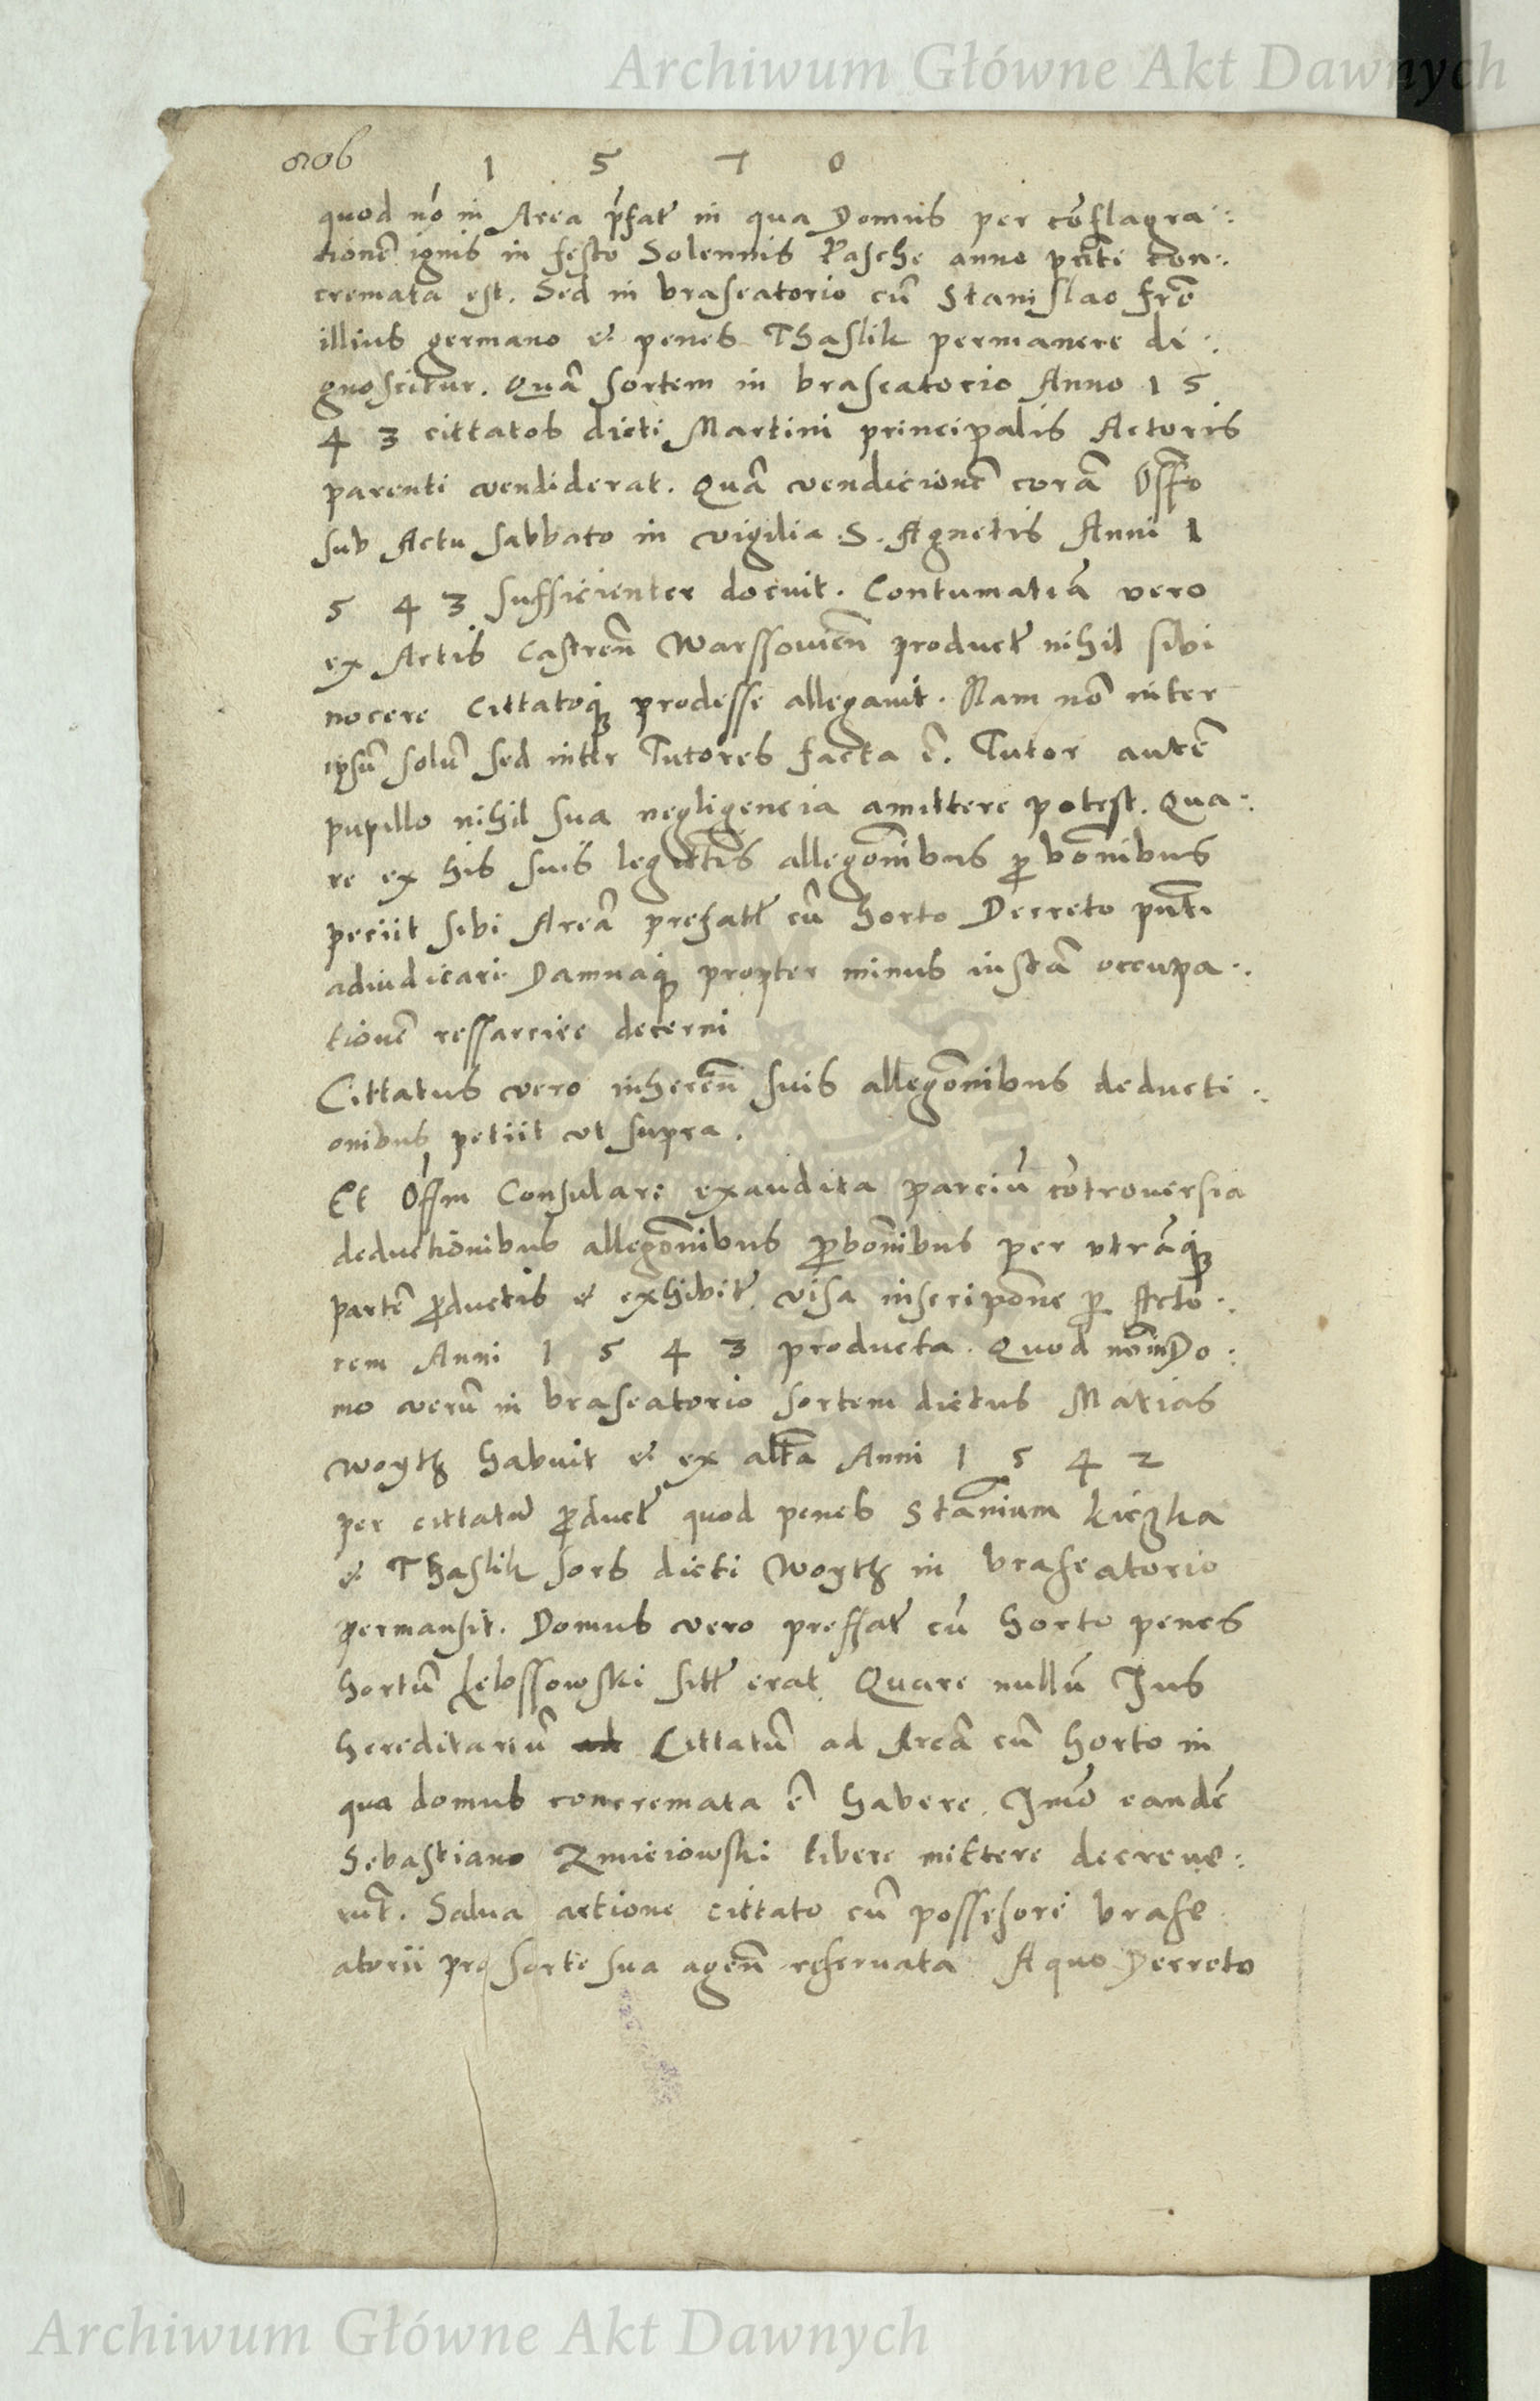 Archiwum Główne Akt Dawnych
806
1 5 7 0
quod nō in Area p̄fat̄ in qua Domus per cōflagra⸫
tionē ignis in festo Solennis Pasche anno pn̄ti con⸫
cremata est. Sed in braseatorio cū Stanislao frē
illius germano et penes Thaslik permanere di⸫
gnoscitur. Quā sortem in braseatorio Anno 1 5
4 3 cittatos dicti Martini principalis Actoris
parenti vendiderat. Quā vendicionē corā Offō
sub Actu sabbato in vigilia S. Agnetis Anni 1
5 4 3 sufficienter docuit. Contumatiā vero
ex Actis Castren̄ Warssovien̄ product̄ nihil sibi
nocere Cittatoq꜄ prodesse allegavit. Nam nō inter
ipsū solū sed inter Tutores facta ē. Tutor autē
pupillo nihil sua negligencia amittere potest. Qua⸫
re ex his suis legittīs allegōnibus p̱bōnibus
peciit sibi Areā prefatā cū horto Decreto pn̄ti
adiudicari Damnaq꜄ propter minus iustā occupa⸫
tionē ressarcire decerni
Cittatus vero inheren̄ suis allegōnibus deducti⸫
onibus petiit vt supra.
Et Offm Consulare exaudita parciū cōtroversia
deductionibus allegōnibus p̱bōnibus per vtrāq꜄
partē p̱ductis et exhibit̄ visa inscripōne p̱ Acto⸫
rem Anni 1 5 4 3 producta. Quod nō in Do⸫
mo verū in braseatorio sortem dictus Matias
Woyth habuit et ex altā Anni 1 5 4 2
per cittatū p̱duct̄ quod penes Stānium Liczka
et Thaslik sors dicti Woyth in braseatorio
permansit. Domus vero preffat̄ cū horto penes
hortū Lebssowski sit̄ erat Quare nullū Jus
hereditariū ad Cittatū ad Areā cū horto in
qua domus concremata ē habere. Jmō eandē
Sebastiano Zmiciowski libere mittere decreve⸫
rūt. Salva actione cittato cū possessore brase
atorii pro sorte sua agen̄ reservata A quo Decreto
Archiwum Główne Akt Dawnych